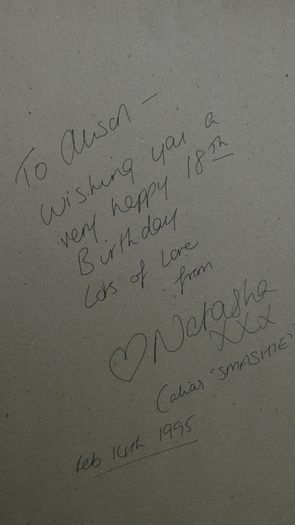 To Alison –
Wishing you a
very happy 18th
Birthday.
Lots of Love
from
♡ Natasha
XXX
(alias "SMASHIE"
Feb 14th 1995